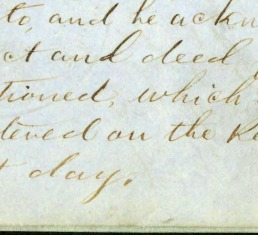 to, and he ackn
ct and deed
tioned, which
tered on the Re
t day.